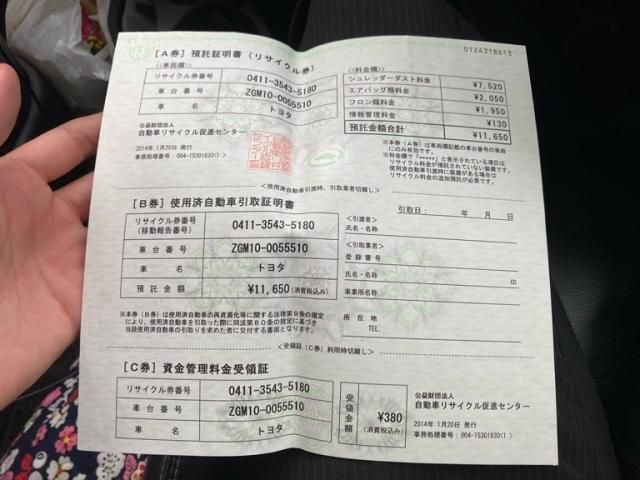 0124318613
[A券] 預託証明書 (リサイクル券)
<車両欄>
リサイクル券番号 0411-3543-5180
車台番号 ZGM10-0055510
車名 トヨタ
<料金欄>
シュレッダーダスト料金 ¥7,520
エアバッグ類料金 ¥2,050
フロン類料金 ¥1,950
情報管理料金 ¥130
預託金額合計 ¥11,650
公益財団法人
自動車リサイクル促進センター
2014年 1月20日 発行
事務処理番号:004-15301830(1 )
※本券(A券)は車両欄記載の車台番号の車両
にのみ有効です。
※料金欄で「*****」と表示されている項目は
リサイクル料金が預託されていない装備です。
使用済自動車引渡時に装備がある場合は
リサイクル料金の追加預託が必要です。
<使用済自動車引渡時、引取業者切離し>
[B券] 使用済自動車引取証明書
引取日: 年 月 日
リサイクル券番号
(移動報告番号) 0411-3543-5180
車台番号 ZGM10-0055510
車名 トヨタ
預託金額 ¥11,650(消費税込み)
<引渡者>
氏名・名称
<引取業者>
登録番号
氏名・名称 印
事業所名称
所在地
TEL.
※本券(B券)は使用済自動車の再資源化等に関する法律第9条の規定
により、使用済自動車を引取った際に同法第80条の規定に基づき
当該使用済自動車の引取りを求めた者に交付する書面となります。
<受領証(C券)利用時切離し>
[C券] 資金管理料金受領証
リサイクル券番号 0411-3543-5180
車台番号 ZGM10-0055510
車名 トヨタ
受領金額 ¥380
(消費税込み)
公益財団法人
自動車リサイクル促進センター
2014年 1月20日 発行
事務処理番号:004-15301830(1 )